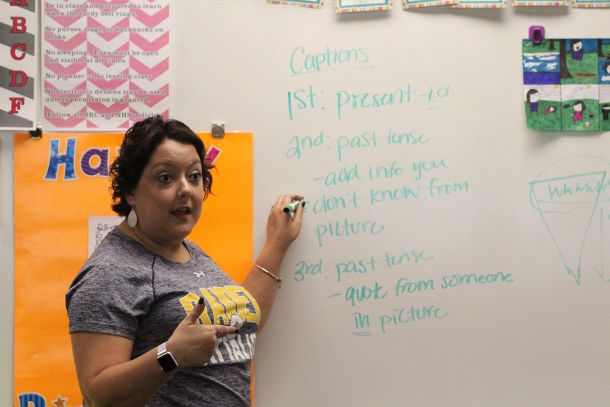 A
B
C
D
F
Be in class and prepared to
learn when the tardy bell rings.
No purses, bags, or backpacks on
desks.
No sleeping. Eyes must be open
and visible at all times.
No planner = No leaving class.
No electronic devices may be used
unless permission is granted.
Follow all SRC and NHS policies
Ha
Captions
1st: present - id.
2nd: past tense
- add info you
don't know from
picture
3rd: past tense
- quote from someone
in picture
WWWW
RAIDER
BATTALION